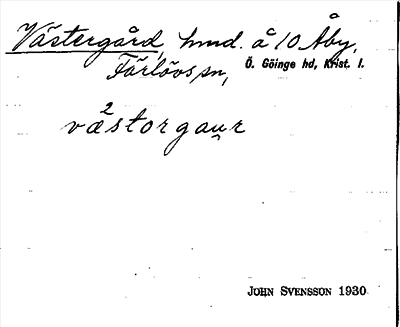 Västergård, hmd. å 10 Åby,
Färlövs sn, Ö. Göinge hd, Krist. l.
væ²storgau̯r
JOHN SVENSSON 1930